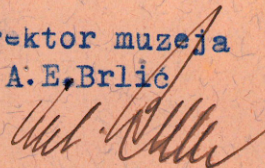 rektor muzeja
A.E.Brlić